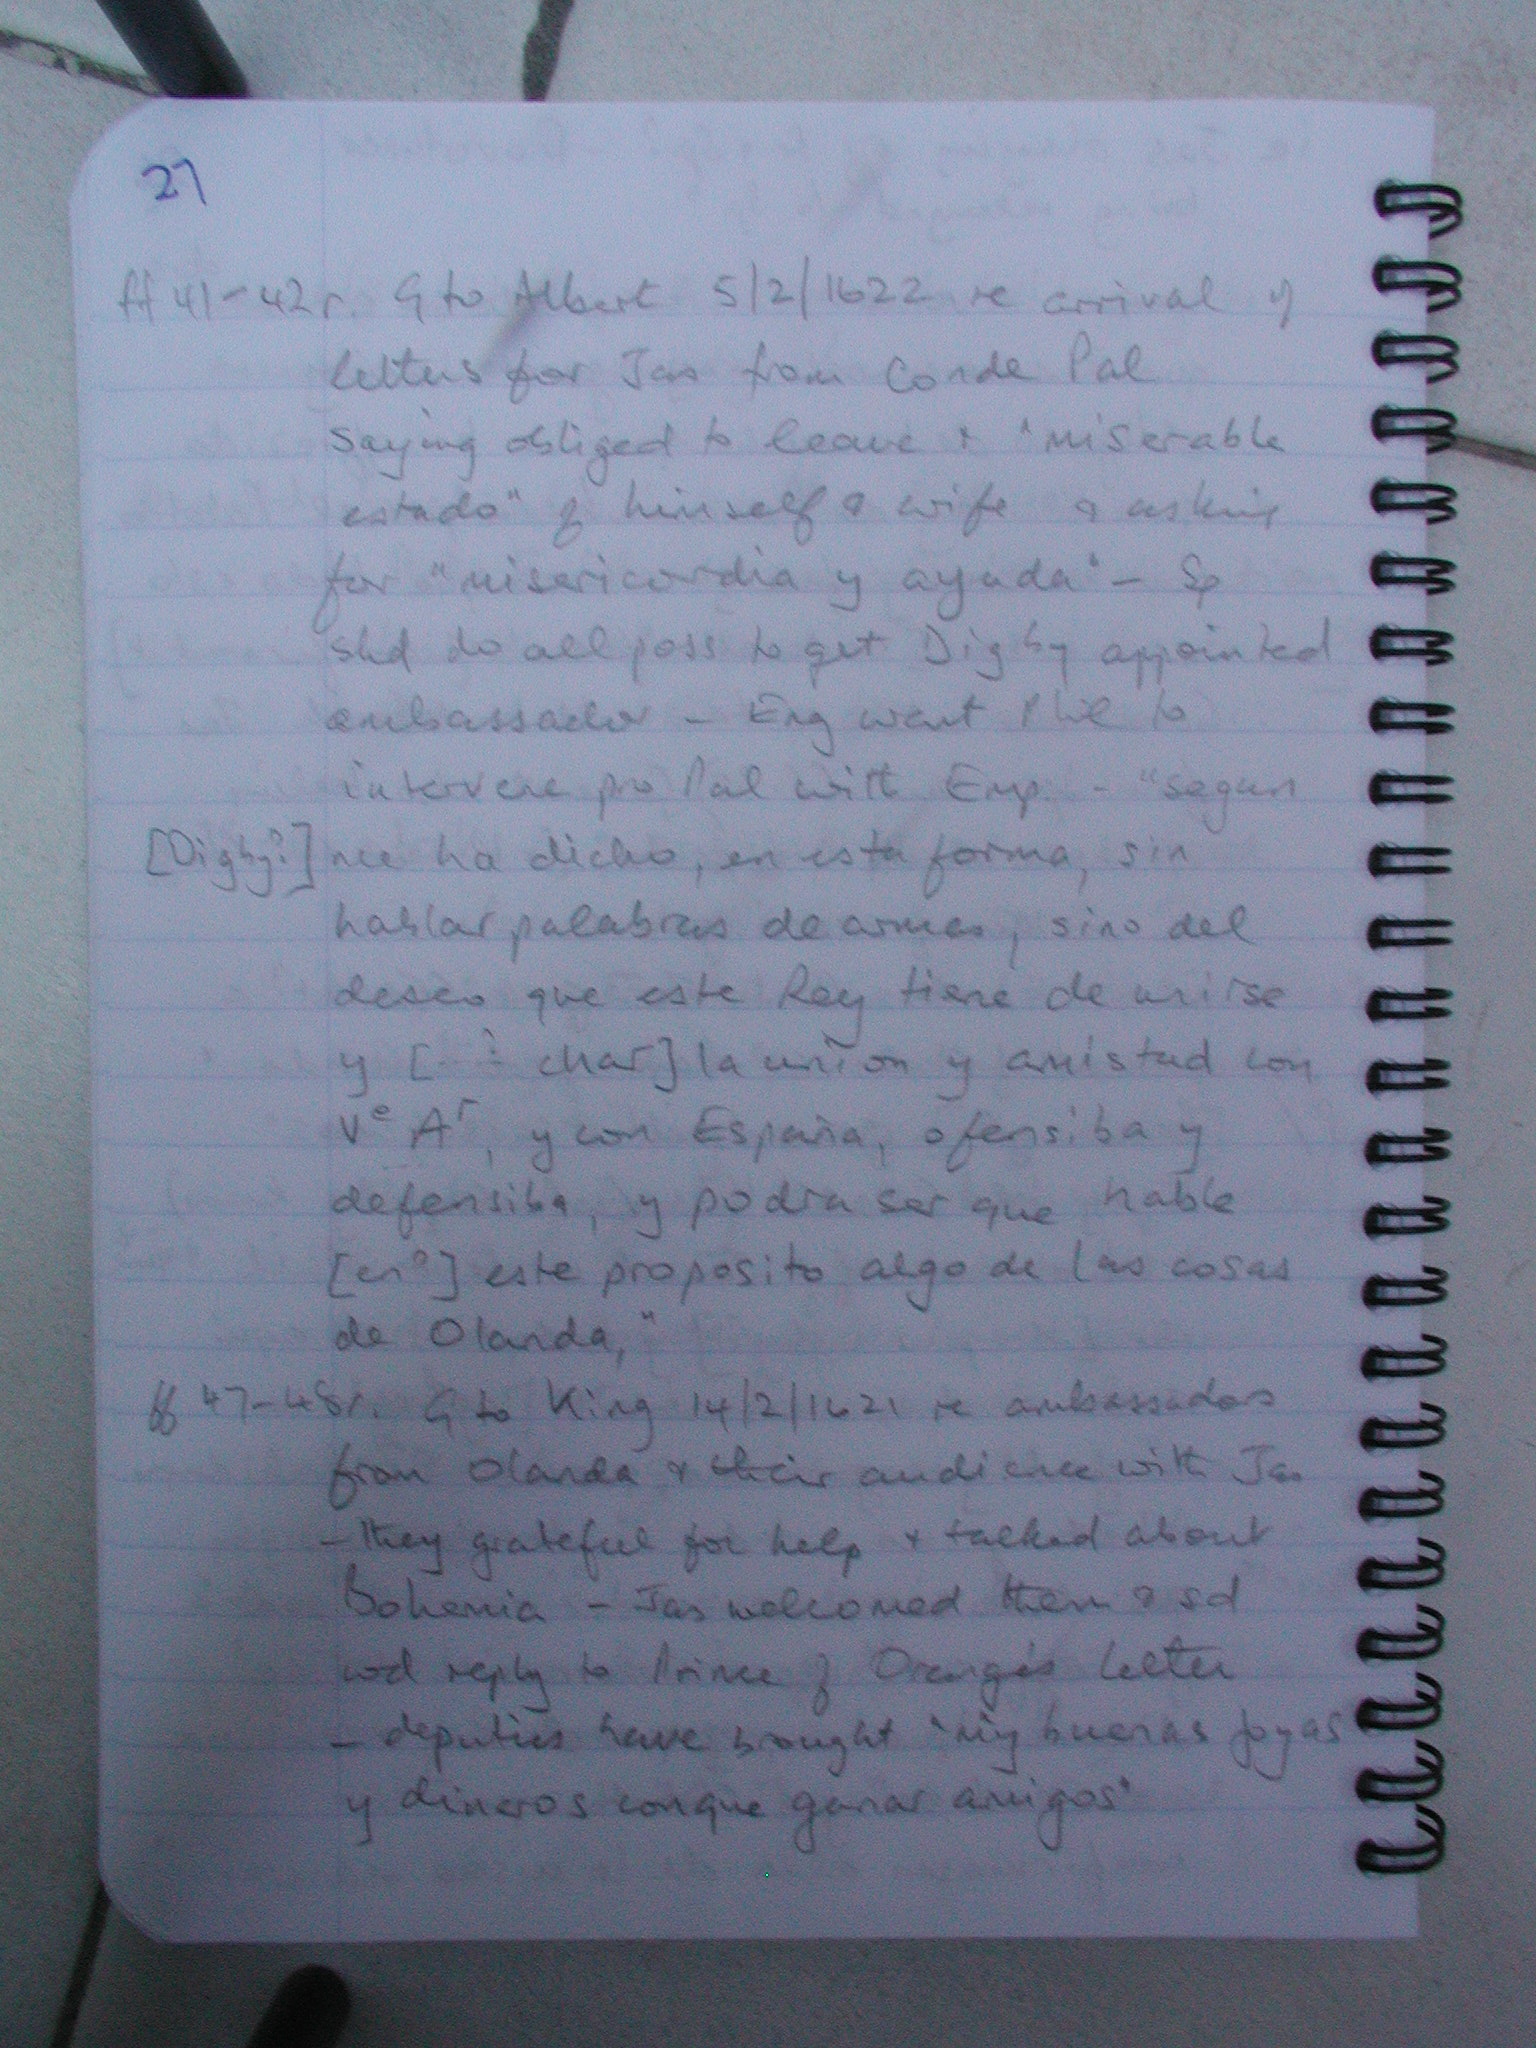 27
ff 41-42r. G to Albert 5/2/1622 re arrival of
letters for Jas from Conde Pal
saying obliged to leave & "miserable
estado" of himself & wife & asking
for "misericordia y ayuda" - Sp
shd do all poss to get Digby appointed
ambassador - Eng want Phil to
intervene pro Pal with Emp. - "segun
[Digby?] me ha dicho, en esta forma, sin
hablar palabras de armas, sino del
deseo que este Rey tiene de unirse
y [--? char] la union y amistad con
Ve Ar, y con España, ofensiba y
defensiba, y podra ser que hable
[en?] este proposito algo de las cosas
de Olanda,"
ff 47-48r. G to King 14/2/1621 re ambassadors
from Olanda & their audience with Jas
- they grateful for help & talked about
Bohemia - Jas welcomed them & sd
wd reply to Prince of Orange's letter
- deputies have brought "muy buenas joyas
y dineros conque ganar amigos"